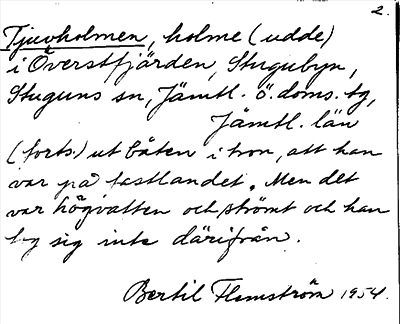 2.
Tjuvholmen, holme (udde)
i Överstfjärden, Stugubyn,
Stuguns sn, Jämtl. ö. doms. tg,
Jämtl. län
(forts.) ut båten i tron, att han
var på fastlandet. Men det
var högvatten och strömt och han
tog sig inte därifrån.
Bertil Flemström 1954.